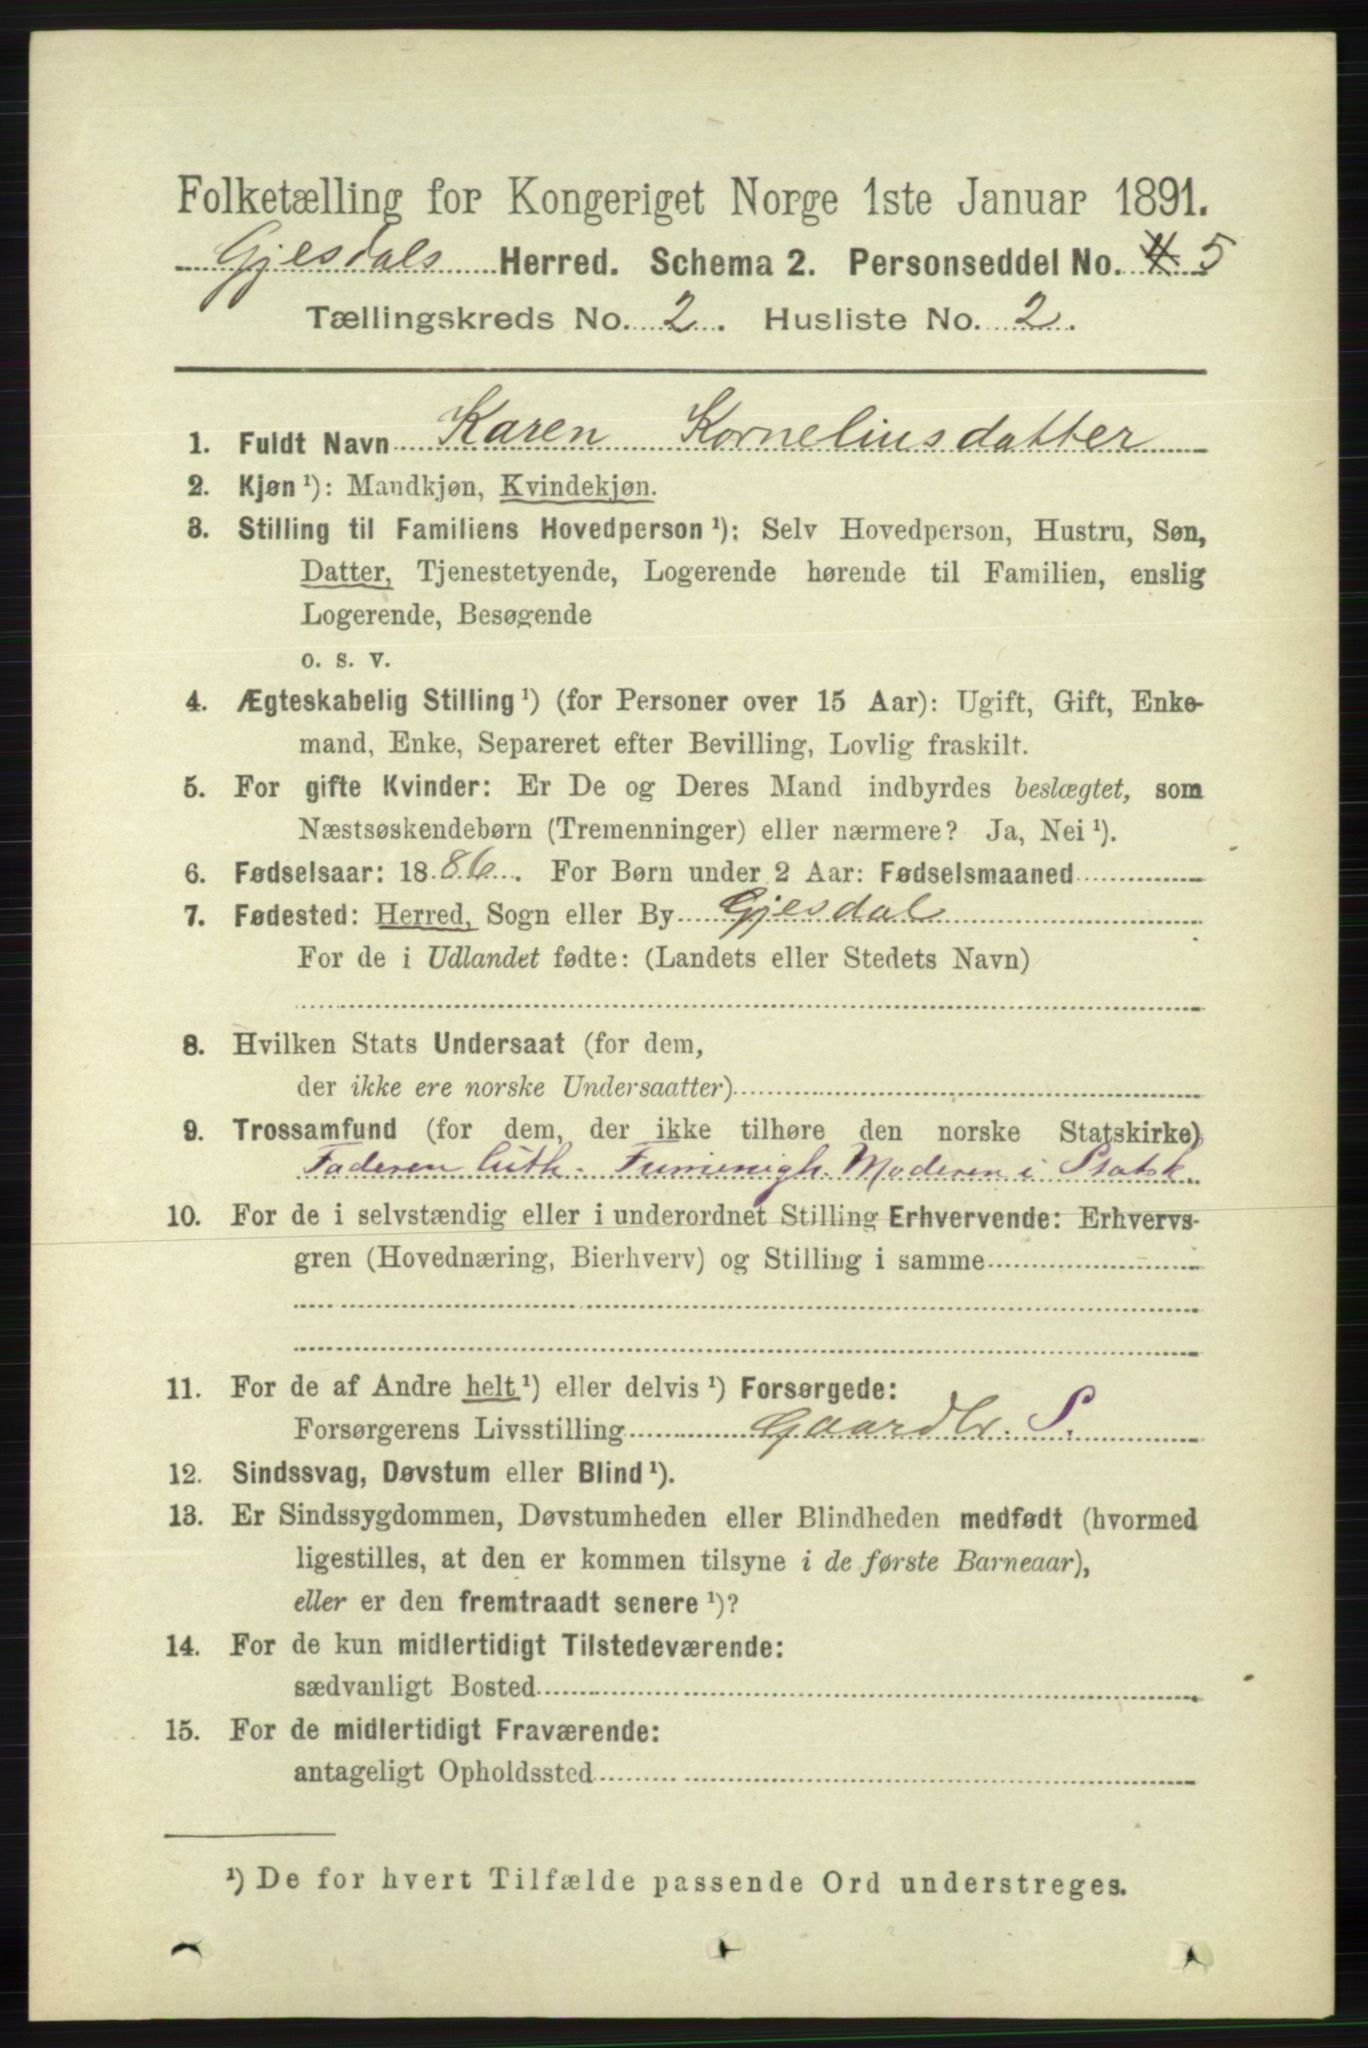 Folketælling for Kongeriget Norge 1ste Januar 1891.
Gjesdals Herred. Schema 2. Personseddel No. 4 5
Tællingskreds No. 2. Husliste No. 2.
1. Fuldt Navn Karen Korneliusdatter
2. Kjøn ¹): Mandkjøn, Kvindekjøn.
3. Stilling til Familiens Hovedperson ¹): Selv Hovedperson, Hustru, Søn,
Datter, Tjenestetyende, Logerende hørende til Familien, enslig
Logerende, Besøgende
o. s. v.
4. Ægteskabelig Stilling ¹) (for Personer over 15 Aar): Ugift, Gift, Enke-
mand, Enke, Separeret efter Bevilling, Lovlig fraskilt.
5. For gifte Kvinder: Er De og Deres Mand indbyrdes beslægtet, som
Næstsøskendebørn (Tremenninger) eller nærmere? Ja, Nei ¹).
6. Fødselsaar: 1886. For Børn under 2 Aar: Fødselsmaaned
7. Fødested: Herred, Sogn eller By Gjesdal
For de i Udlandet fødte: (Landets eller Stedets Navn)
8. Hvilken Stats Undersaat (for dem,
der ikke ere norske Undersaatter)
9. Trossamfund (for dem, der ikke tilhøre den norske Statskirke)
Faderen luth. Moderen i Statsk.
10. For de i selvstændig eller i underordnet Stilling Erhvervende: Erhvervs-
gren (Hovednæring, Bierhverv) og Stilling i samme
11. For de af Andre helt ¹) eller delvis ¹) Forsørgede:
Forsørgerens Livsstilling Gaardbr. S.
12. Sindssvag, Døvstum eller Blind ¹).
13. Er Sindssygdommen, Døvstumheden eller Blindheden medfødt (hvormed
ligestilles, at den er kommen tilsyne i de første Barneaar),
eller er den fremtraadt senere ¹)?
14. For de kun midlertidigt Tilstedeværende:
sædvanligt Bosted
15. For de midlertidigt Fraværende:
antageligt Opholdssted
¹) De for hvert Tilfælde passende Ord understreges.